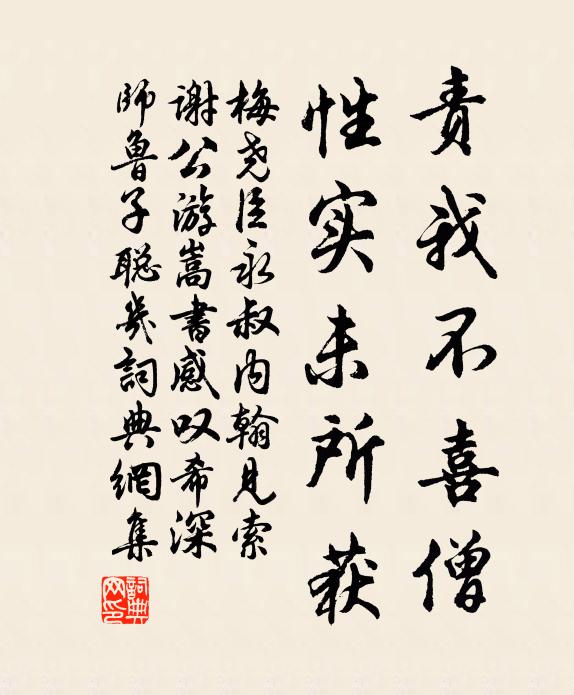 责我不喜僧
性实未所获
梅尧臣永叔内翰见索
谢公游嵩書感叹希深
師魯子聪幾詞典網集
詞典网印